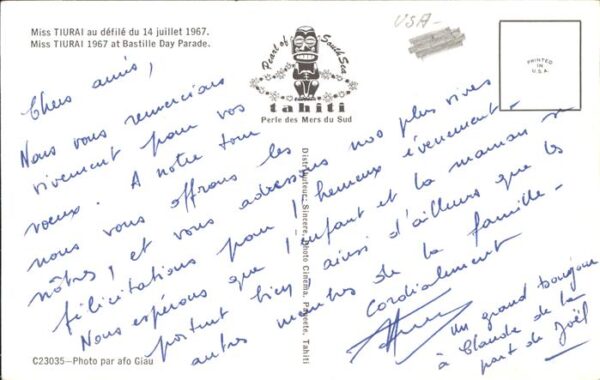 Miss TIURAI au défilé du 14 juillet 1967.
Miss TIURAI 1967 at Bastille Day Parade.
Pearl of South Sea
tahiti
Perle des Mers du Sud
USA-
PRINTED IN U.S.A.
Chers amis,
Nous vous remercions
vivement pour vos
voeux. A notre tour
nous vous offrons les
nôtres! et vous adressons nos plus vives
félicitations pour l'heureux événement-
Nous espérons que l'enfant et la maman se
portent bien, ainsi d'ailleurs que les
autres membres de la famille-
Cordialement
Un grand bonjour
à Claude de la
part de Joël
Distributeur: Sincere, Photo Cinema, Papeete, Tahiti
C23035-Photo par afo Giau